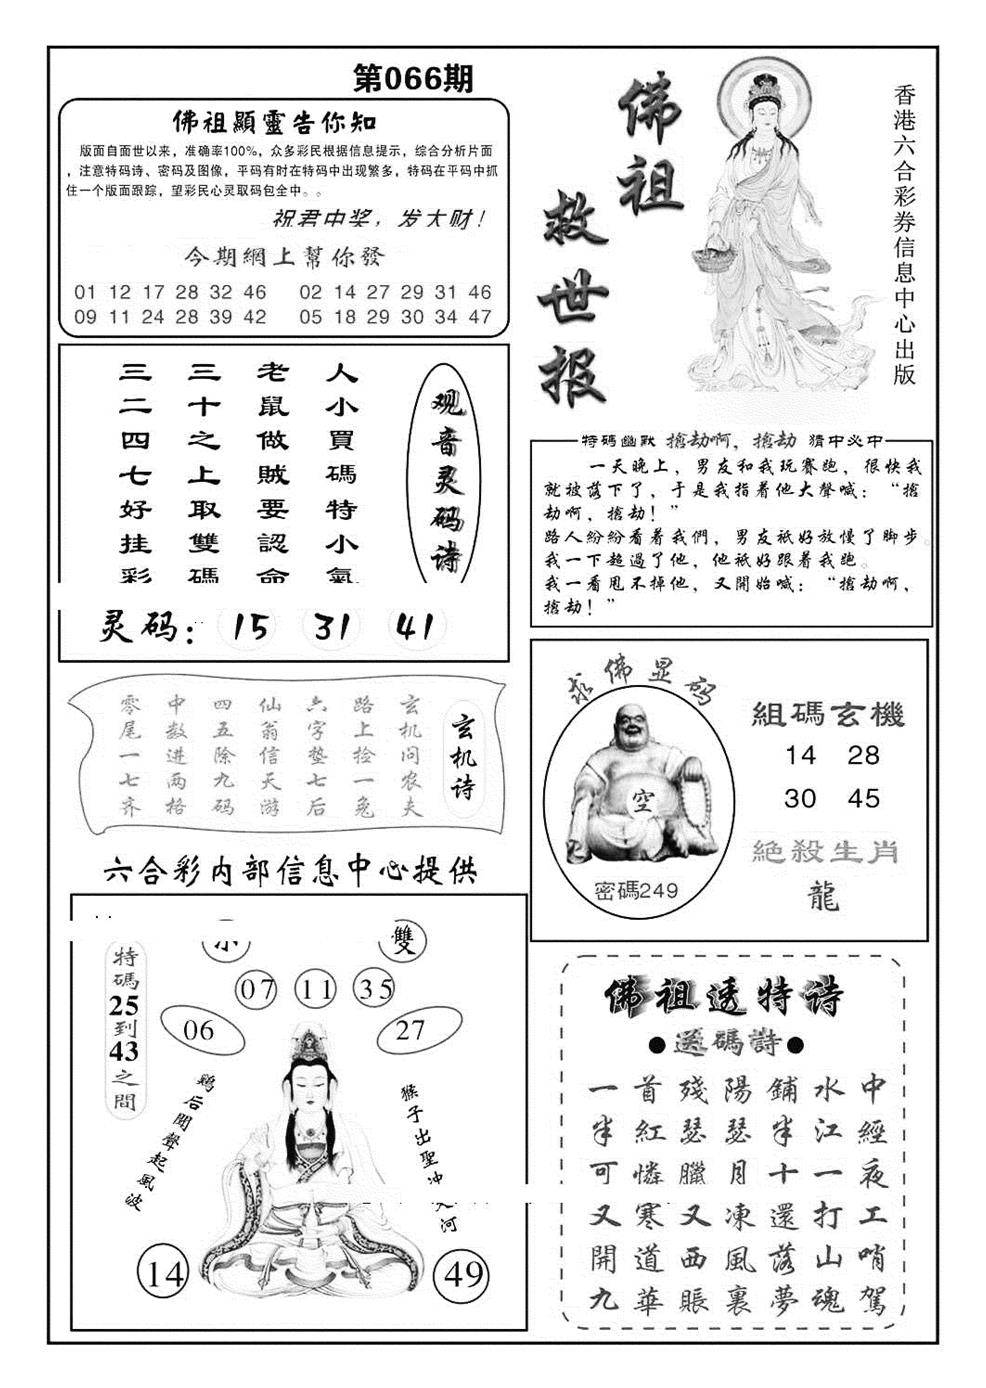 第066期
佛祖顯靈告你知
版面自面世以来，准确率100%，众多彩民根据信息提示，综合分析片面
，注意特码诗、密码及图像，平码有时在特码中出现繁多，特码在平码中抓
住一个版面跟踪，望彩民心灵取码包全中。。
祝君中奖，发大财！
今期網上幫你發
01 12 17 28 32 46 02 14 27 29 31 46
09 11 24 28 39 42 05 18 29 30 34 47
佛祖
救世报
香港六合彩券信息中心出版
观音灵码诗
人小買碼特小氣
老鼠做賊要認命
三十之上取雙碼
三二四七好挂彩
灵码：15 31 41
特碼幽默 搶劫啊，搶劫 猜中必中
一天晚上，男友和我玩賽跑，很快我
就被落下了，于是我指着他大聲喊：“搶
劫啊，搶劫！”
路人紛紛看着我們，男友祇好放慢了脚步。
我一下超過了他，他祇好跟着我跑。
我一看甩不掉他，又開始喊：“搶劫啊，
搶劫！”
玄机诗
玄机问农夫
路上捡一兔
六字垫七后
仙翁信天游
四五除九码
中数进两格
零尾一七齐
求佛显码
空
密碼249
組碼玄機
14 28
30 45
絕殺生肖
龍
六合彩内部信息中心提供
小
雙
特碼25到43之間
07 11 35
06 27
鷄后聞聲起風波
猴子出聖冲天河
14 49
佛祖透特诗
●送碼詩●
一首殘陽鋪水中
半紅瑟瑟半江經
可憐臘月十一夜
又寒又凍還打工
開道西風落山哨
九華賬裏夢魂駕